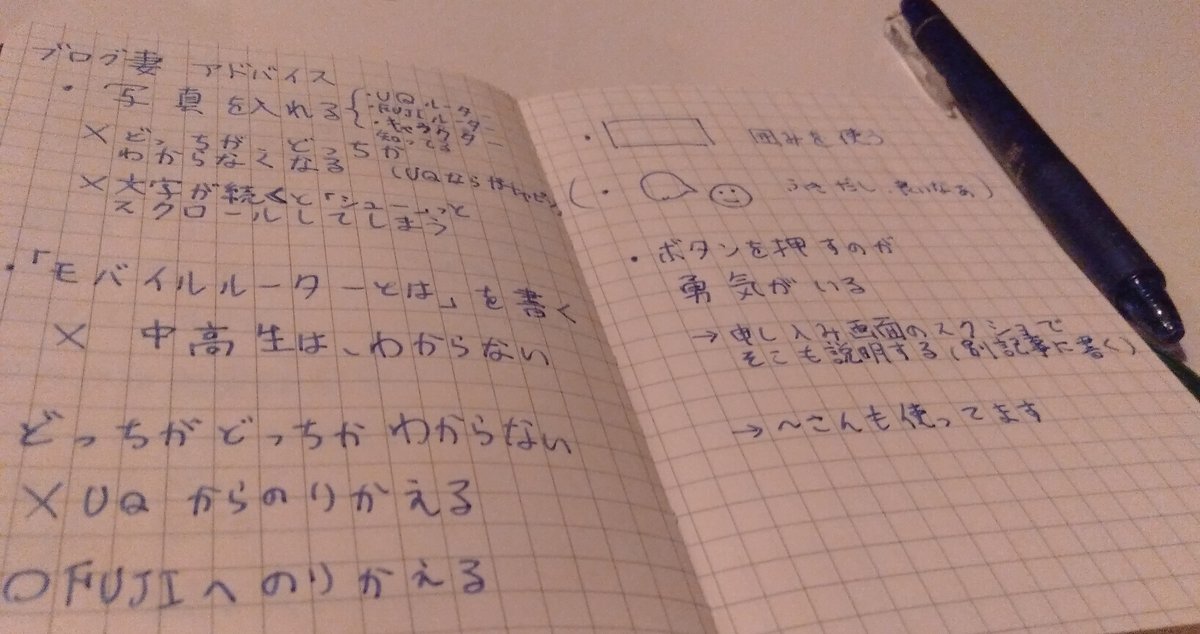 ブログ妻 アドバイス
・写真を入れる{・UQルーター
・FUJIルーター
・
× どっちがどっちか
わからなくなる (UQなら
× 文字が続くと「シューーッと
スクロールしてしまう
・「モバイルルーターとは」を書く
× 中高生は、わからない
どっちがどっちかわからない
× UQからのりかえる
○ FUJIへのりかえる
・ 囲みを使う
(・ ふきだし、
・ボタンを押すのが
勇気がいる
→申し込み画面のスクショで
そこも説明する(別記事に書く)
→〜さんも使ってます